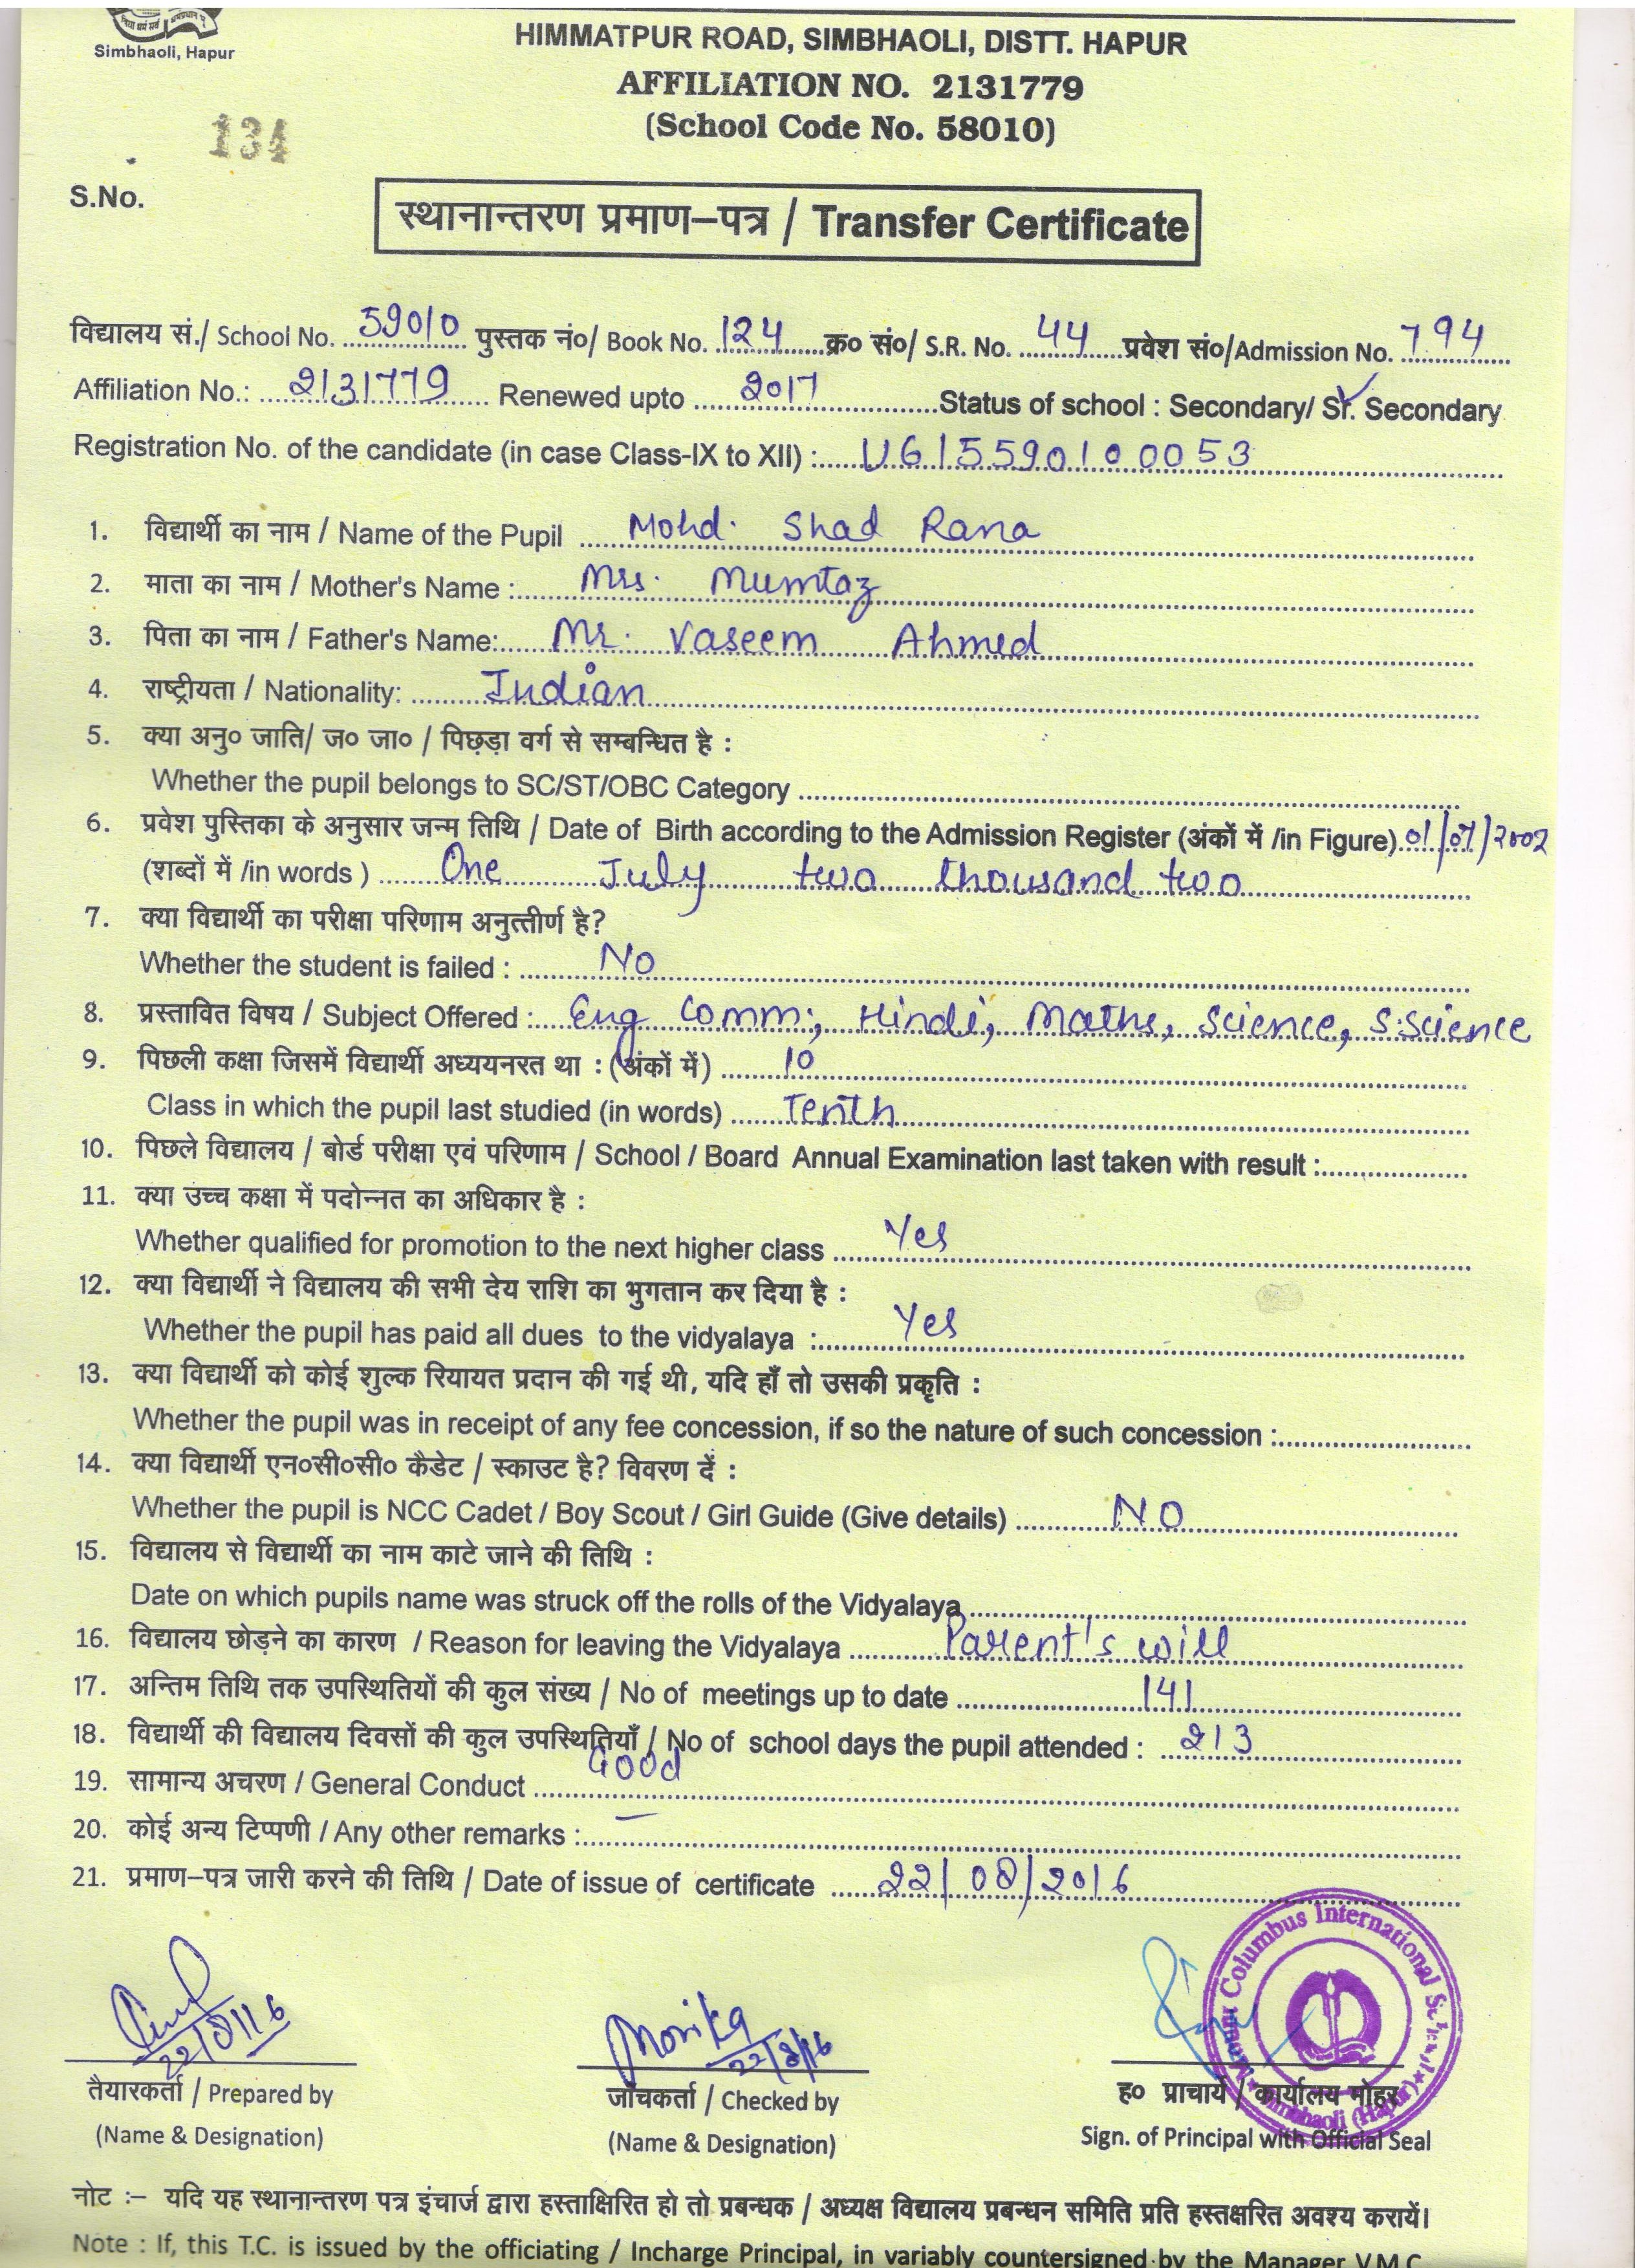 Simbhaoli, Hapur
HIMMATPUR ROAD, SIMBHAOLI, DISTT. HAPUR
AFFILIATION NO. 2131779
(School Code No. 58010)
134
S.No.
स्थानान्तरण प्रमाण–पत्र / Transfer Certificate
विद्यालय सं./ School No. 59010 पुस्तक नं०/ Book No. 124 क्र० सं०/ S.R. No. 44 प्रवेश सं०/Admission No. 794
Affiliation No.: 2131779 Renewed upto 2017 Status of school : Secondary/ Sr. Secondary
Registration No. of the candidate (in case Class-IX to XII) : UG15590100053
1. विद्यार्थी का नाम / Name of the Pupil Mohd. Shad Rana
2. माता का नाम / Mother's Name : Mrs. Mumtaz
3. पिता का नाम / Father's Name: Mr. Vaseem Ahmed
4. राष्ट्रीयता / Nationality: Indian
5. क्या अनु० जाति/ ज० जा० / पिछड़ा वर्ग से सम्बन्धित है :
Whether the pupil belongs to SC/ST/OBC Category
6. प्रवेश पुस्तिका के अनुसार जन्म तिथि / Date of Birth according to the Admission Register (अंकों में /in Figure) 01/07/2002
(शब्दों में /in words ) One July two thousand two
7. क्या विद्यार्थी का परीक्षा परिणाम अनुत्तीर्ण है?
Whether the student is failed : No
8. प्रस्तावित विषय / Subject Offered : Eng Comm;, Hindi, Maths, Science, S.Science
9. पिछली कक्षा जिसमें विद्यार्थी अध्ययनरत था : (अंकों में) 10
Class in which the pupil last studied (in words) Tenth
10. पिछले विद्यालय / बोर्ड परीक्षा एवं परिणाम / School / Board Annual Examination last taken with result :
11. क्या उच्च कक्षा में पदोन्नत का अधिकार है :
Whether qualified for promotion to the next higher class Yes
12. क्या विद्यार्थी ने विद्यालय की सभी देय राशि का भुगतान कर दिया है :
Whether the pupil has paid all dues to the vidyalaya : Yes
13. क्या विद्यार्थी को कोई शुल्क रियायत प्रदान की गई थी, यदि हाँ तो उसकी प्रकृति :
Whether the pupil was in receipt of any fee concession, if so the nature of such concession :
14. क्या विद्यार्थी एन०सी०सी० कैडेट / स्काउट है? विवरण दें :
Whether the pupil is NCC Cadet / Boy Scout / Girl Guide (Give details) NO
15. विद्यालय से विद्यार्थी का नाम काटे जाने की तिथि :
Date on which pupils name was struck off the rolls of the Vidyalaya
16. विद्यालय छोड़ने का कारण / Reason for leaving the Vidyalaya Parent's will
17. अन्तिम तिथि तक उपस्थितियों की कुल संख्य / No of meetings up to date 141
18. विद्यार्थी की विद्यालय दिवसों की कुल उपस्थितियाँ / No of school days the pupil attended : 213
19. सामान्य अचरण / General Conduct Good
20. कोई अन्य टिप्पणी / Any other remarks : –
21. प्रमाण–पत्र जारी करने की तिथि / Date of issue of certificate 22/08/2016
Columbus International School
Simbhaoli (Hapur)
22/8/16
Monika
22/8/16
तैयारकर्ता / Prepared by
जाँचकर्ता / Checked by
ह० प्राचार्य / कार्यालय मोहर
(Name & Designation)
(Name & Designation)
Sign. of Principal with Official Seal
नोट :– यदि यह स्थानान्तरण पत्र इंचार्ज द्वारा हस्ताक्षिरित हो तो प्रबन्धक / अध्यक्ष विद्यालय प्रबन्धन समिति प्रति हस्तक्षरित अवश्य करायें।
Note : If, this T.C. is issued by the officiating / Incharge Principal, in variably countersigned by the Manager V.M.C.